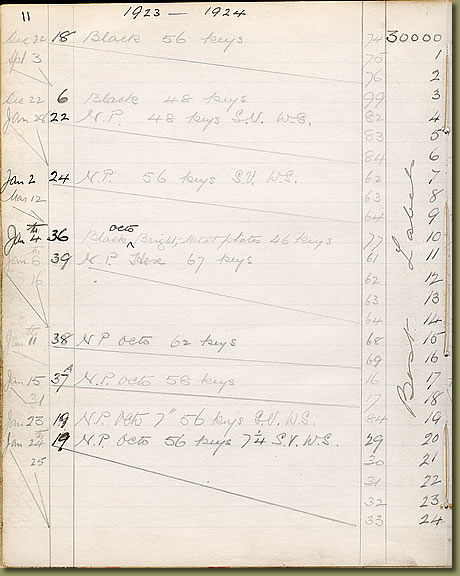 11 1923 — 1924
Dec 22 18 Black 56 keys 74 30000
Apl 3 75 1
76 2
Dec 22 6 Black 48 keys 99 3
Jan 28 22 N.P. 48 keys S.V. W.S. 82 4
83 5
84 6
Jan 2 24 N.P. 56 keys S.V. W.S. 62 7
Mar 12 63 8
64 9
Jan 4th 36 Black octo Bright Metal plates 46 keys 77 10
Jan 8 39 N.P. Hex 67 keys 61 11
16 62 12
63 13
64 14
Jan 11th 38 N.P. Octo 62 keys 68 15
69 16
Jan 15 37A N.P. Octo 58 keys 16 17
31 17 18
Jan 23 19 N.P. Octo 7" 56 keys S.V. W.S. 84 19
Jan 24th 19 N.P. Octo 56 keys 7¼ S.V. W.S. 29 20
25 30 21
31 22
32 23
33 24
Best Label